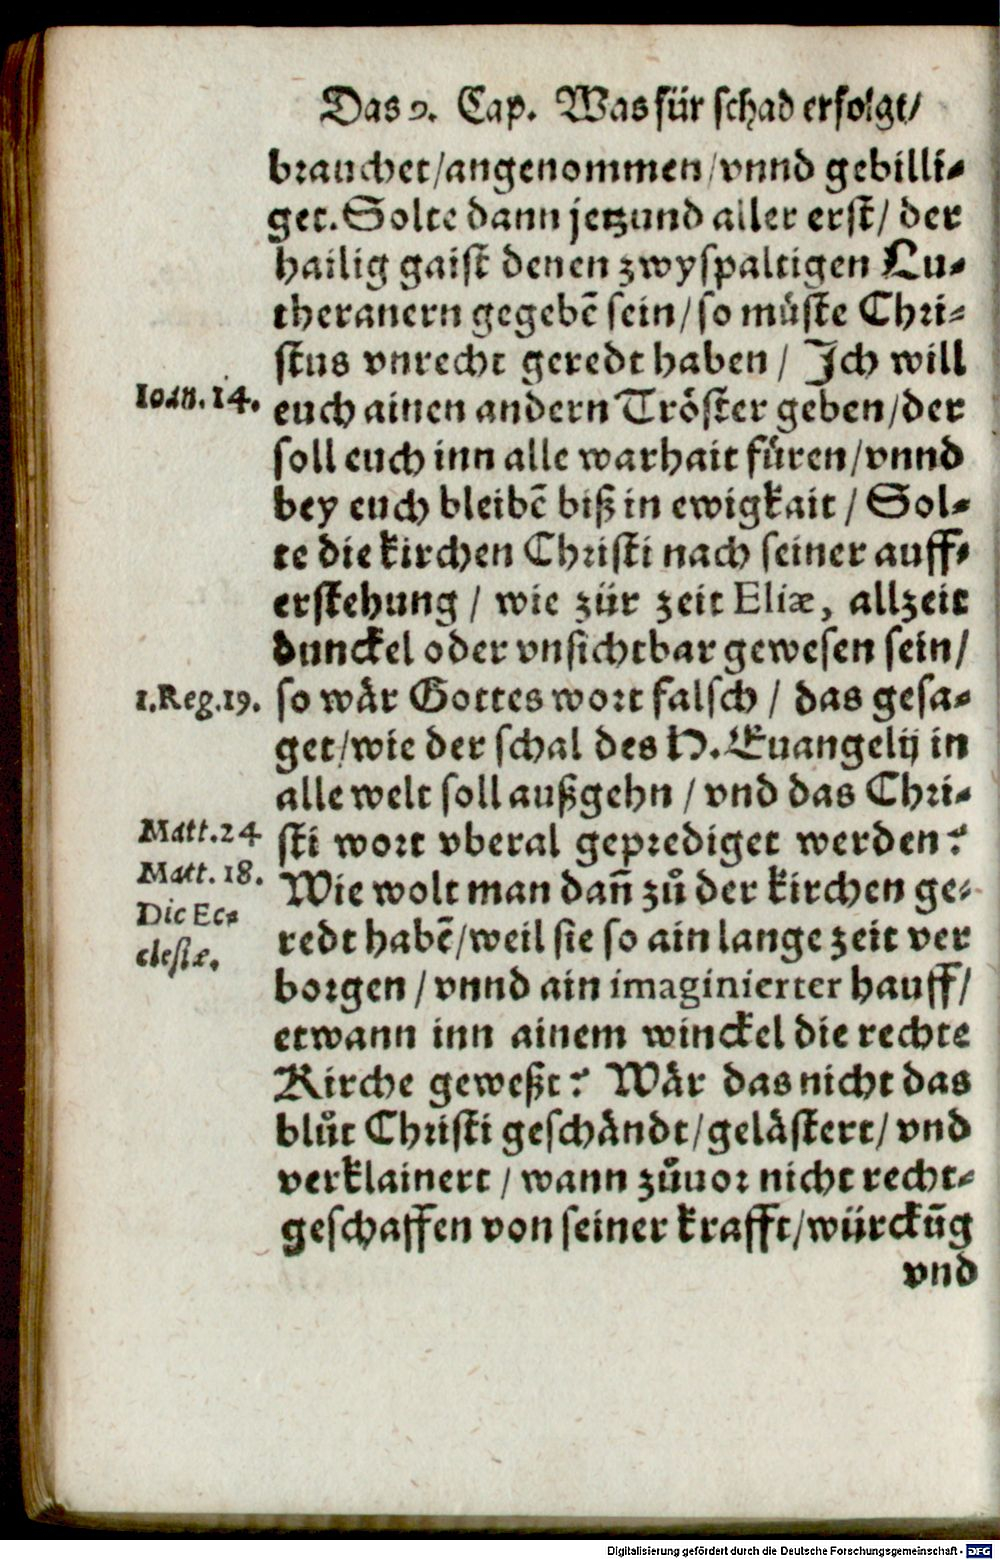 Das 9. Cap. Was für schad erfolgt/
brauchet/angenommen/vnnd gebilli⸗
get. Solte dann jetzund aller erst/ der
hailig gaist denen zwyspaltigen Lu⸗
theranern gegebē sein/so müste Chri⸗
stus vnrecht geredt haben / Ich will
Ioan. 14. euch ainen andern Tröster geben/der
soll euch inn alle warhait füren/vnnd
bey euch bleibē biß in ewigkait / Sol⸗
te die kirchen Christi nach seiner auff⸗
erstehung / wie zür zeit Eliæ, allzeit
dunckel oder vnsichtbar gewesen sein/
1. Reg. 19. so wär Gottes wort falsch / das gesa⸗
get/wie der schal des H. Euangelij in
alle welt soll außgehn / vnd das Chri⸗
Matt. 24 sti wort vberal geprediget werden?
Matt. 18. Wie wolt man dañ zů der kirchen ge⸗
Dic Ec⸗
clesiæ. redt habē/weil sie so ain lange zeit ver
borgen / vnnd ain imaginierter hauff/
etwann inn ainem winckel die rechte
Kirche geweßt? Wär das nicht das
blůt Christi geschändt/gelästert/ vnd
verklainert / wann zůuor nicht recht⸗
geschaffen von seiner krafft/würckūg
vnd
Digitalisierung gefördert durch die Deutsche Forschungsgemeinschaft - DFG